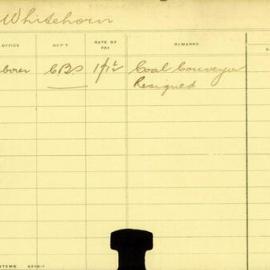 Whitehorn
OFFICE DEP'T RATE OF PAY REMARKS
borer CBS 1/1½ Coal Conveyor
Resigned